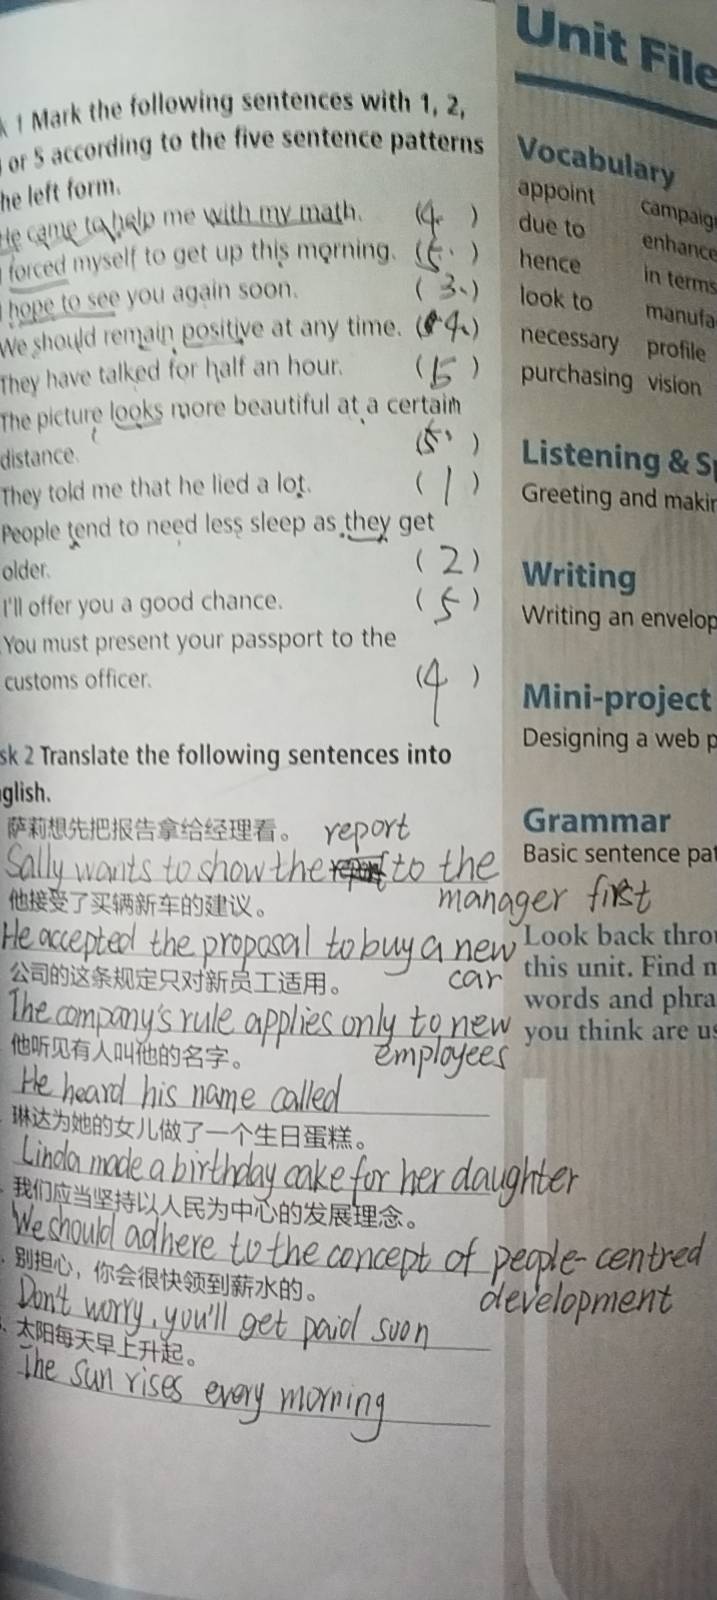 Unit File
1 Mark the following sentences with 1, 2,
or 5 according to the five sentence patterns
he left form.
He came to help me with my math. (4. )
forced myself to get up this morning. (5. )
I hope to see you again soon. ( 3. )
We should remain positive at any time. ( 4. )
They have talked for half an hour. ( 5 )
The picture looks more beautiful at a certain
distance. (5. )
They told me that he lied a lot. ( 1 )
People tend to need less sleep as they get
older. ( 2 )
I'll offer you a good chance. ( 5 )
You must present your passport to the
customs officer. (4 )
sk 2 Translate the following sentences into
glish.
萨莉想先把报告拿给经理看。 report
Sally wants to show the to the
manager first
他接受了买辆新车的建议。
He accepted the proposal to buy a new
car
公司的这条规定只对新员工适用。
The company's rule applies only to new
employees
他听见有人叫他的名字。
He heard his name called
琳达为她的女儿做了一个生日蛋糕。
Linda made a birthday cake for her daughter
我们应当坚持以人民为中心的发展理念。
We should adhere to the concept of people-centred
development
别担心，你会很快领到薪水的。
Don't worry, you'll get paid soon
太阳每天早上升起。
The sun rises every morning
Vocabulary
appoint campaig
due to enhance
hence in terms
look to manufa
necessary profile
purchasing vision
Listening & Sp
Greeting and makin
Writing
Writing an envelop
Mini-project
Designing a web p
Grammar
Basic sentence pat
Look back thro
this unit. Find n
words and phra
you think are us